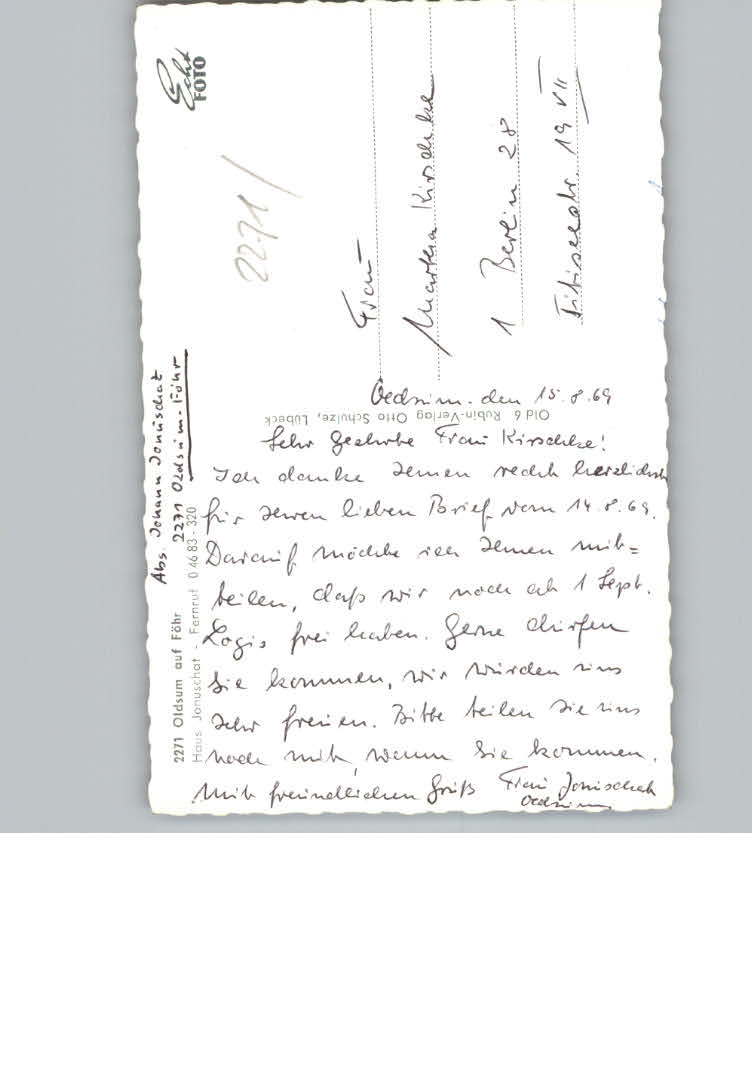 Echt
FOTO
2271/
Frau
Martha Kirschke
1 Berlin 28
Titiseestr. 19 VII
Abs. Johann Jonuschat
2271 Oldsum-Föhr
2271 Oldsum auf Föhr
Haus Jonuschat - Fernruf 0 46 83 - 320
Old 6 Rubin-Verlag Otto Schulze, Lübeck
Oldsum. den 15.8.69
Sehr geehrte Frau Kirschke!
Ich danke Ihnen recht herzlichst
für Ihren lieben Brief vom 14.8.69.
Darauf möchte ich Ihnen mit=
teilen, daß wir noch ab 1 Sept.
Logis frei haben. Gerne dürfen
Sie kommen, wir würden uns
sehr freuen. Bitte teilen Sie uns
noch mit, wann Sie kommen.
Mit freundlichen Gruß Frau Jonuschat
Oldsum